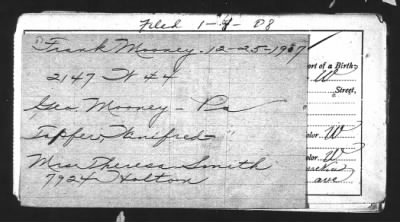 Filed 1-8-08
Frank Mooney. 12-25-1907
ort of a Birth
2147 W 44
W
Street,
Geo Mooney - Pa
Winifred "
olor W
Mrs Theresa Smith
olor W
7924 Holton
ave